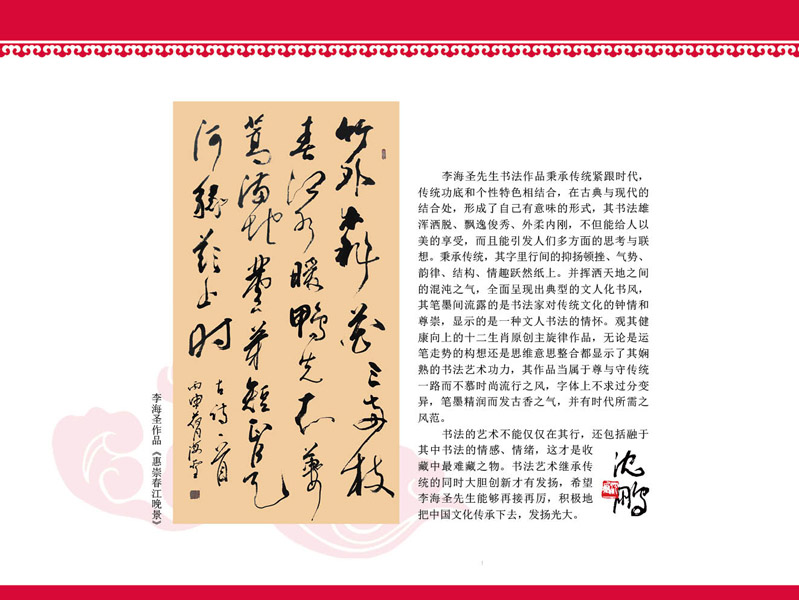 竹外桃花三两枝
春江水暖鸭先知蒌
蒿满地芦芽短正是
河豚欲上时
古诗一首
丙申
李海圣作品《惠崇春江晚景》
李海圣先生书法作品秉承传统紧跟时代，
传统功底和个性特色相结合，在古典与现代的
结合处，形成了自己有意味的形式，其书法雄
浑洒脱、飘逸俊秀、外柔内刚，不但能给人以
美的享受，而且能引发人们多方面的思考与联
想。秉承传统，其字里行间的抑扬顿挫、气势、
韵律、结构、情趣跃然纸上。并挥洒天地之间
的混沌之气，全面呈现出典型的文人化书风，
其笔墨间流露的是书法家对传统文化的钟情和
尊崇，显示的是一种文人书法的情怀。观其健
康向上的十二生肖原创主旋律作品，无论是运
笔走势的构想还是思维意思整合都显示了其娴
熟的书法艺术功力，其作品当属于尊与守传统
一路而不慕时尚流行之风，字体上不求过分变
异，笔墨精润而发古香之气，并有时代所需之
风范。
书法的艺术不能仅仅在其行，还包括融于
其中书法的情感、情绪，这才是收
藏中最难藏之物。书法艺术继承传
统的同时大胆创新才有发扬，希望
李海圣先生能够再接再厉，积极地
把中国文化传承下去，发扬光大。
沈鹏